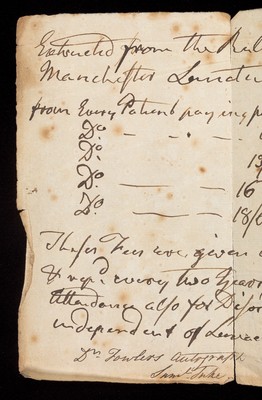 Extracted from the Rul
Manchester Lunatic
from Every Patient paying p
Do. — " —
Do. 13
Do. — — 16
Do. — — 18/6
These Fees are given
& rep.d every two Years
Attendance also for Disor
independent of Lunac
Dr. Fowlers Autograph
Saml. Tuke